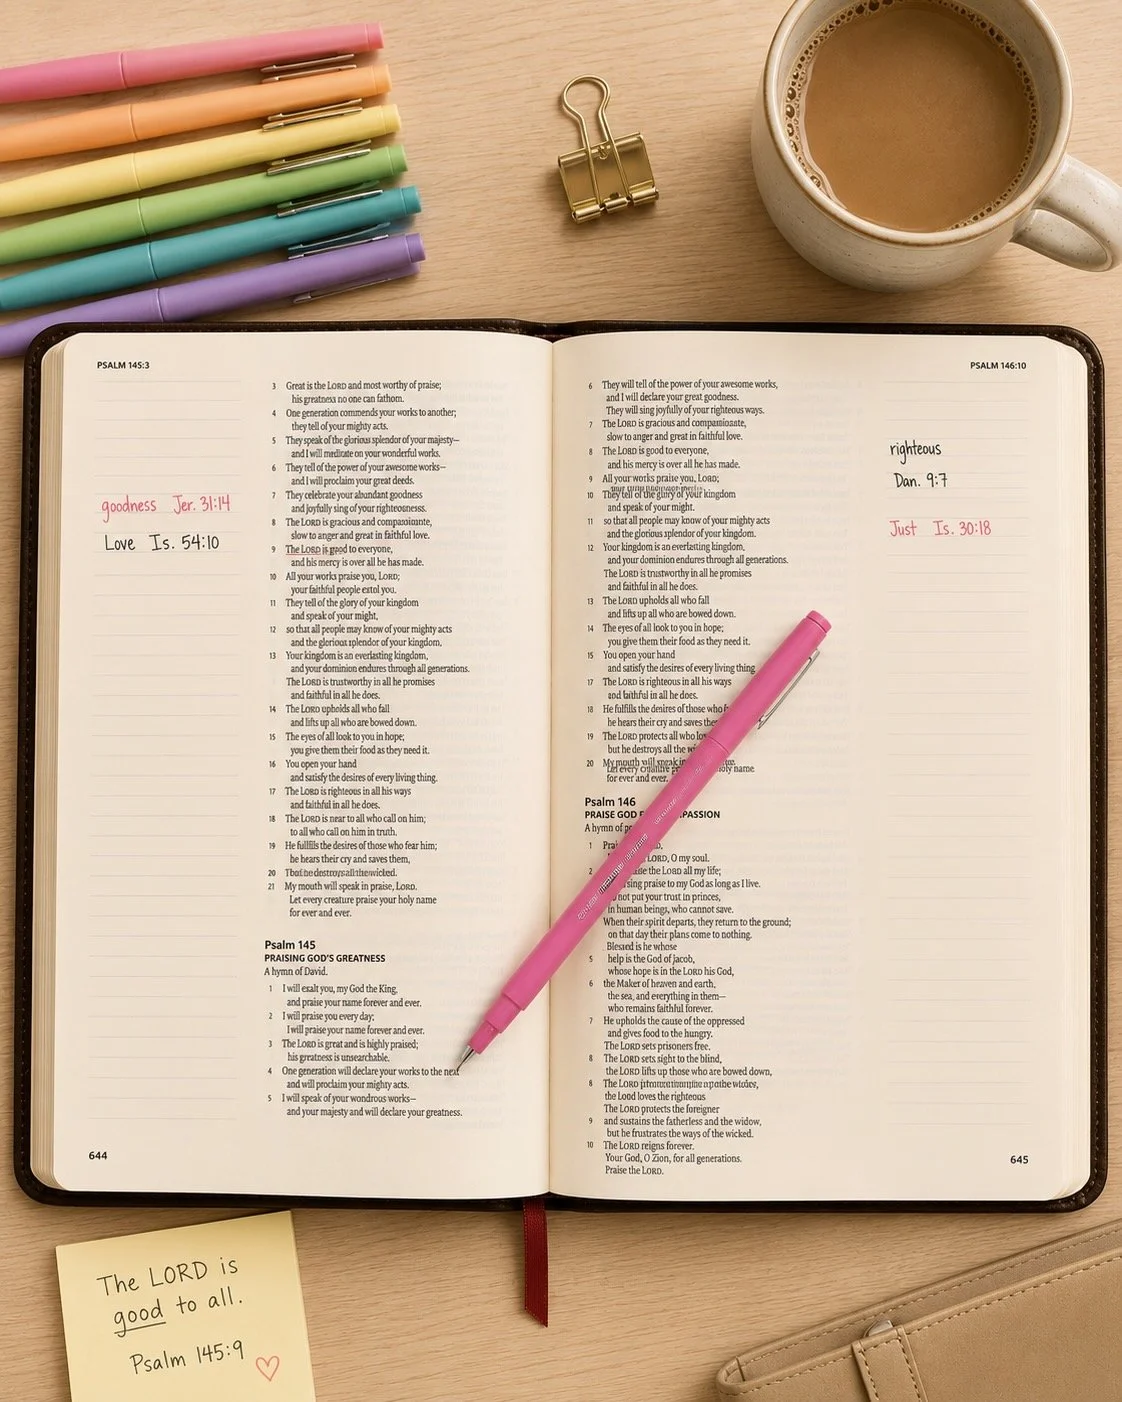 PSALM 145:3
goodness Jer. 31:14
Love Is. 54:10
3 Great is the LORD and most worthy of praise;
his greatness no one can fathom.
4 One generation commends your works to another;
they tell of your mighty acts.
5 They speak of the glorious splendor of your majesty—
and I will meditate on your wonderful works.
6 They tell of the power of your awesome works—
and I will proclaim your great deeds.
7 They celebrate your abundant goodness
and joyfully sing of your righteousness.
8 The LORD is gracious and compassionate,
slow to anger and great in faithful love.
9 The LORD is good to everyone,
and his mercy is over all he has made.
10 All your works praise you, LORD;
your faithful people extol you.
11 They tell of the glory of your kingdom
and speak of your might,
12 so that all people may know of your mighty acts
and the glorious splendor of your kingdom,
13 Your kingdom is an everlasting kingdom,
and your dominion endures through all generations.
The LORD is trustworthy in all he promises
and faithful in all he does.
14 The LORD upholds all who fall
and lifts up all who are bowed down.
15 The eyes of all look to you in hope;
you give them their food as they need it.
16 You open your hand
and satisfy the desires of every living thing.
17 The LORD is righteous in all his ways
and faithful in all he does.
18 The LORD is near to all who call on him;
to all who call on him in truth.
19 He fulfills the desires of those who fear him;
he hears their cry and saves them,
20 destroys all the wicked.
21 My mouth will speak in praise, LORD.
Let every creature praise your holy name
for ever and ever.
Psalm 145
PRAISING GOD'S GREATNESS
A hymn of David.
1 I will exalt you, my God the King,
and praise your name forever and ever.
2 I will praise you every day;
I will praise your name forever and ever.
3 The LORD is great and is highly praised;
his greatness is unsearchable.
4 One generation will declare your works to the next
and will proclaim your mighty acts.
5 I will speak of your wondrous works—
and your majesty and will declare your greatness.
644
PSALM 146:10
6 They will tell of the power of your awesome works,
and I will declare your great goodness.
They will sing joyfully of your righteous ways.
7 The LORD is gracious and compassionate,
slow to anger and great in faithful love.
8 The LORD is good to everyone,
and his mercy is over all he has made.
9 All your works praise you, LORD;
10 They tell of the glory of your kingdom
and speak of your might.
11 so that all people may know of your mighty acts
and the glorious splendor of your kingdom.
12 Your kingdom is an everlasting kingdom,
and your dominion endures through all generations.
The LORD is trustworthy in all he promises
and faithful in all he does.
13 The LORD upholds all who fall
and lifts up all who are bowed down.
14 The eyes of all look to you in hope;
you give them their food as they need it.
15 You open your hand
and satisfy the desires of every living thing
17 The LORD is righteous in all his ways
and faithful in all he does.
18 He fulfills the desires of those who
he hears their cry and saves
19 The LORD protects all who
but he destroys all the
20 My mouth will speak in
holy name
for ever and ever.
Psalm 146
PRAISE GOD
A hymn of
1
LORD, O my soul.
2 the LORD all my life;
sing praise to my God as long as I live.
not put your trust in princes,
in human beings, who cannot save.
When their spirit departs, they return to the ground;
on that day their plans come to nothing.
Blessed is he whose
5 help is the God of Jacob,
whose hope is in the LORD his God,
6 the Maker of heaven and earth,
the sea, and everything in them—
who remains faithful forever.
7 He upholds the cause of the oppressed
and gives food to the hungry.
The LORD sets prisoners free.
8 The LORD sets sight to the blind,
the LORD lifts up those who are bowed down,
8 The LORD
the Lood loves the righteous
The LORD protects the foreigner
9 and sustains the fatherless and the widow,
but he frustrates the ways of the wicked.
10 The LORD reigns forever.
Your God, O Zion, for all generations.
Praise the LORD.
righteous
Dan. 9:7
Just Is. 30:18
645
The LORD is
good to all.
Psalm 145:9